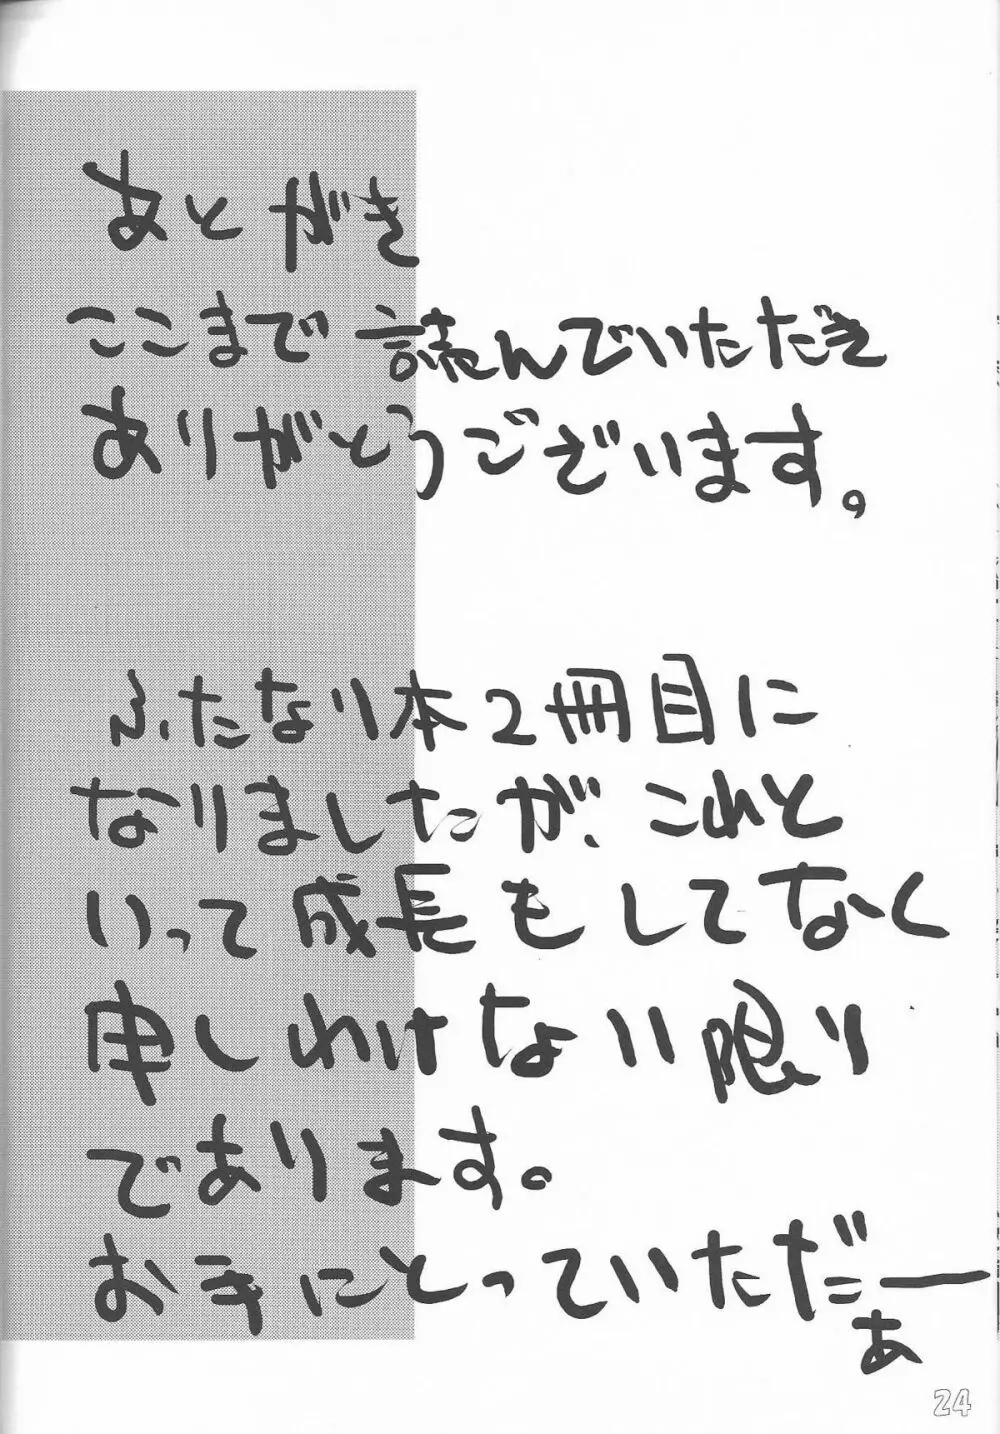 あとがき
ここまで読んでいただき
ありがとうございます。
ふたなり本2冊目に
なりましたが、これと
いって成長もしてなく
申しわけない限り
であります。
お手にとっていただぁー
24